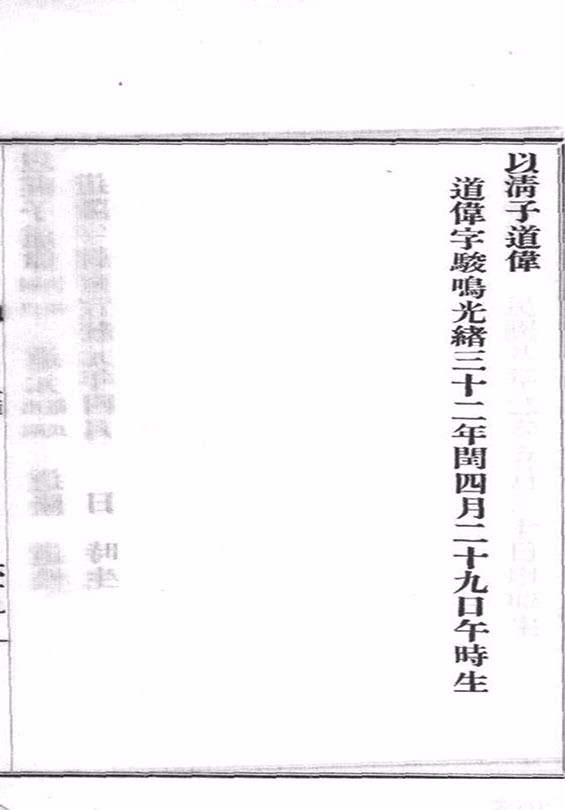 以清子道偉
道偉字駿鳴光緒三十二年閏四月二十九日午時生